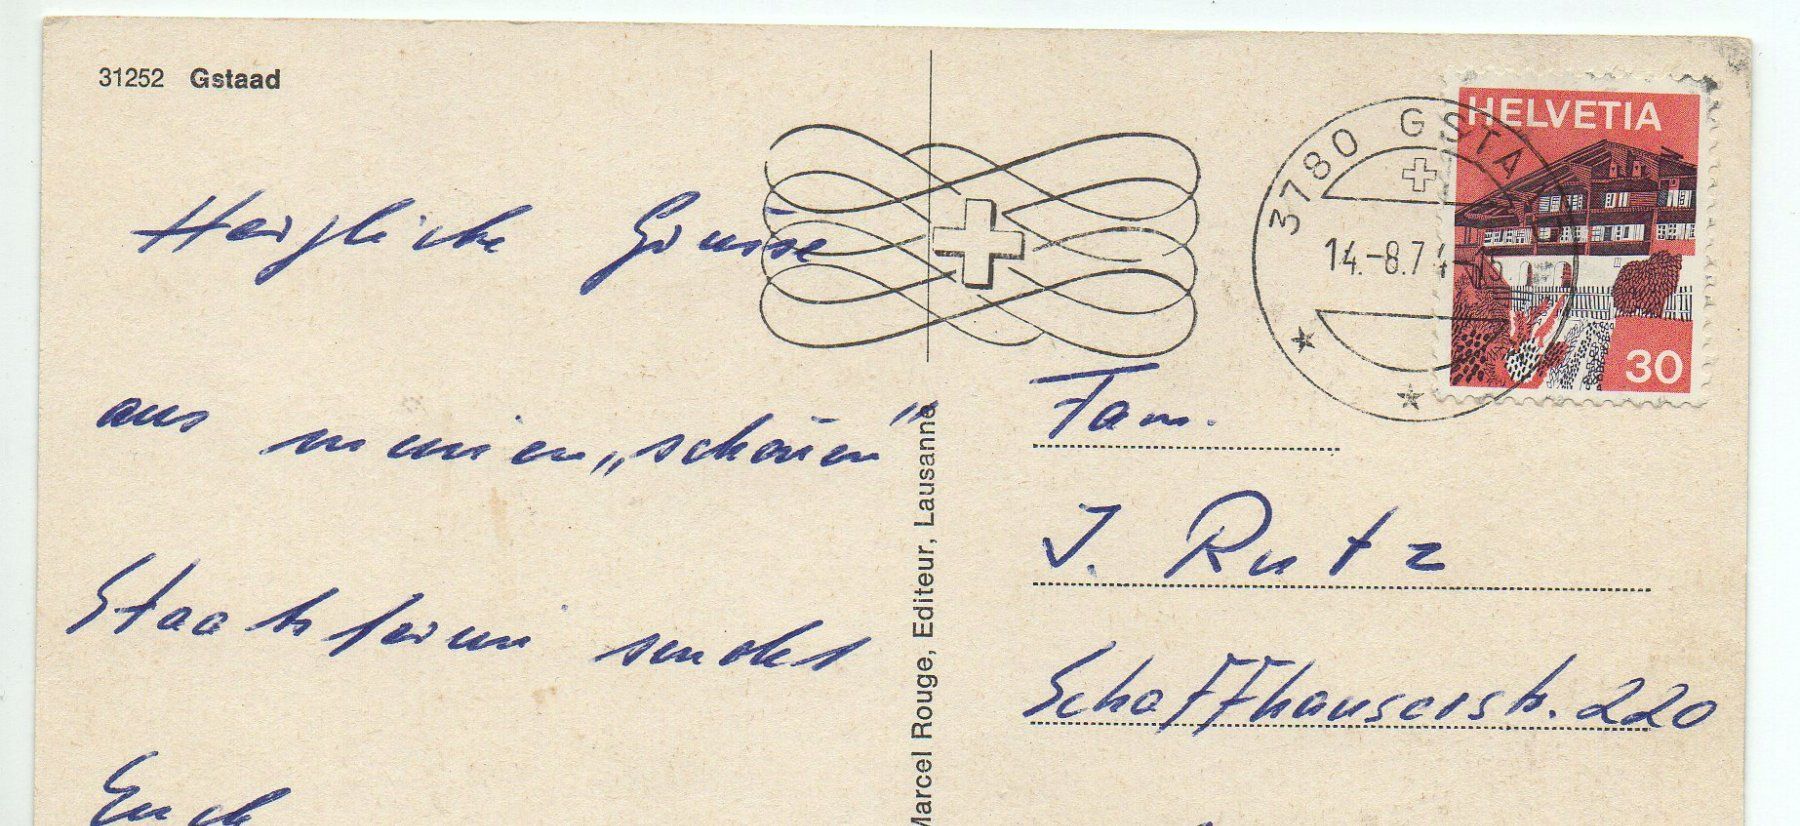 31252 Gstaad
HELVETIA
3780 GSTAA
14.-8.7
30
Herzliche Grüsse
aus meinen „schönen"
Staatsferien sendet
Euch
Fam.
J. Rutz
Schaffhauserstr. 220
Marcel Rouge, Editeur, Lausanne